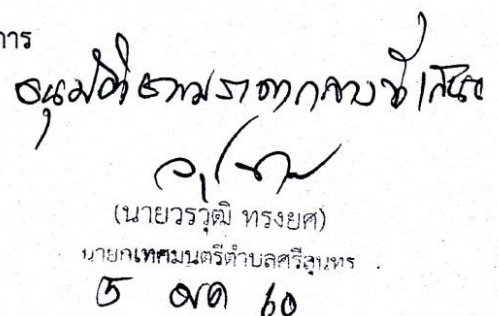 การ
อนุมัติตามราคากลางที่เสนอ
(นายวรวุฒิ ทรงยศ)
นายกเทศมนตรีตำบลศรีสุนทร
5 60